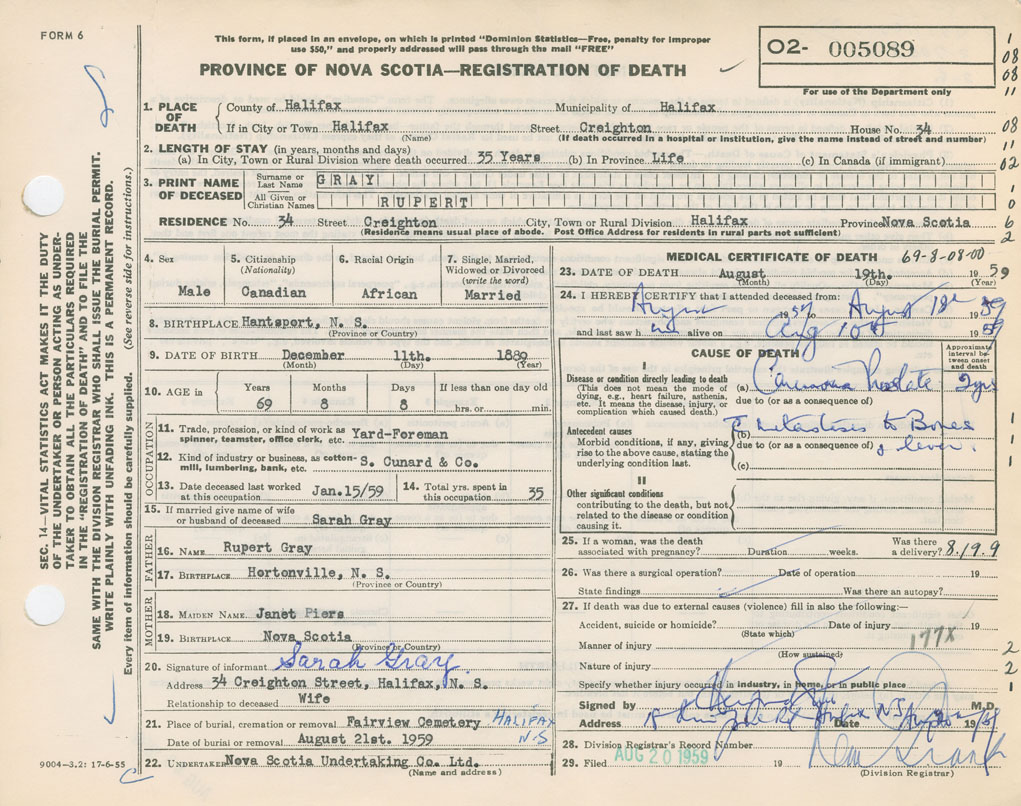 FORM 6
This form, if placed in an envelope, on which is printed "Dominion Statistics—Free, penalty for improper
use $50," and properly addressed will pass through the mail "FREE"
PROVINCE OF NOVA SCOTIA—REGISTRATION OF DEATH
02- 005089
For use of the Department only
1
08
08
11
08
11
02
1
0
6
2
SEC. 14—VITAL STATISTICS ACT MAKES IT THE DUTY
OF THE UNDERTAKER OR PERSON ACTING AS UNDER-
TAKER TO OBTAIN ALL THE PARTICULARS REQUIRED
IN THE "REGISTRATION OF DEATH" AND TO FILE THE
SAME WITH THE DIVISION REGISTRAR WHO SHALL ISSUE THE BURIAL PERMIT.
WRITE PLAINLY WITH UNFADING INK. THIS IS A PERMANENT RECORD.
Every item of information should be carefully supplied. (See reverse side for instructions.)
1. PLACE OF DEATH
County of Halifax Municipality of Halifax
If in City or Town Halifax Street Creighton House No. 34
(Name) (If death occurred in a hospital or institution, give the name instead of street and number)
2. LENGTH OF STAY (in years, months and days)
(a) In City, Town or Rural Division where death occurred 35 Years (b) In Province Life (c) In Canada (if immigrant)
3. PRINT NAME OF DECEASED
Surname or Last Name GRAY
All Given or Christian Names RUPERT
RESIDENCE No. 34 Street Creighton City, Town or Rural Division Halifax Province Nova Scotia
(Residence means usual place of abode. Post Office Address for residents in rural parts not sufficient)
4. Sex
Male
5. Citizenship
(Nationality)
Canadian
6. Racial Origin
African
7. Single, Married,
Widowed or Divorced
(write the word)
Married
8. BIRTHPLACE Hantsport, N. S.
(Province or Country)
9. DATE OF BIRTH December 11th. 1889
(Month) (Day) (Year)
10. AGE in
Years Months Days If less than one day old
69 8 8 hrs. or min.
OCCUPATION
11. Trade, profession, or kind of work as
spinner, teamster, office clerk, etc. Yard-Foreman
12. Kind of industry or business, as cotton-
mill, lumbering, bank, etc. S. Cunard & Co.
13. Date deceased last worked
at this occupation Jan.15/59
14. Total yrs. spent in
this occupation 35
15. If married give name of wife
or husband of deceased Sarah Gray
FATHER
16. NAME Rupert Gray
17. BIRTHPLACE Hortonville, N. S.
(Province or Country)
MOTHER
18. MAIDEN NAME Janet Piers
19. BIRTHPLACE Nova Scotia
(Province or Country)
20. Signature of informant Sarah Gray
Address 34 Creighton Street, Halifax, N. S.
Relationship to deceased Wife
21. Place of burial, cremation or removal Fairview Cemetery HALIFAX
N.S
Date of burial or removal August 21st. 1959
22. UNDERTAKER Nova Scotia Undertaking Co. Ltd.
(Name and address)
9004—3.2: 17-6-55
MEDICAL CERTIFICATE OF DEATH 69-8-08-00
23. DATE OF DEATH August 19th. 1959
(Month) (Day) (Year)
24. I HEREBY CERTIFY that I attended deceased from:
August 1957 August 18th 1959
and last saw him alive on Aug 1959
CAUSE OF DEATH
Approximate
interval be-
tween onset
and death
I
Disease or condition directly leading to death
(This does not mean the mode of
dying, e.g., heart failure, asthenia,
etc. It means the disease, injury, or
complication which caused death.)
(a) 2 yrs
due to (or as a consequence of)
Antecedent causes
Morbid conditions, if any, giving
rise to the above cause, stating the
underlying condition last.
(b) to Bones
due to (or as a consequence of)
(c)
1
1
1
II
Other significant conditions
contributing to the death, but not
related to the disease or condition
causing it.
25. If a woman, was the death
associated with pregnancy? Duration weeks. Was there
a delivery? 8.19.9
26. Was there a surgical operation? Date of operation 19
State findings Was there an autopsy?
27. If death was due to external causes (violence) fill in also the following:—
Accident, suicide or homicide? Date of injury 19
(State which)
177X
Manner of injury
(How sustained)
Nature of injury
Specify whether injury occurred in industry, in home, or in public place
2
2
1
Signed by M.D.
Address 19
28. Division Registrar's Record Number
29. Filed AUG 20 1959 19
(Division Registrar)